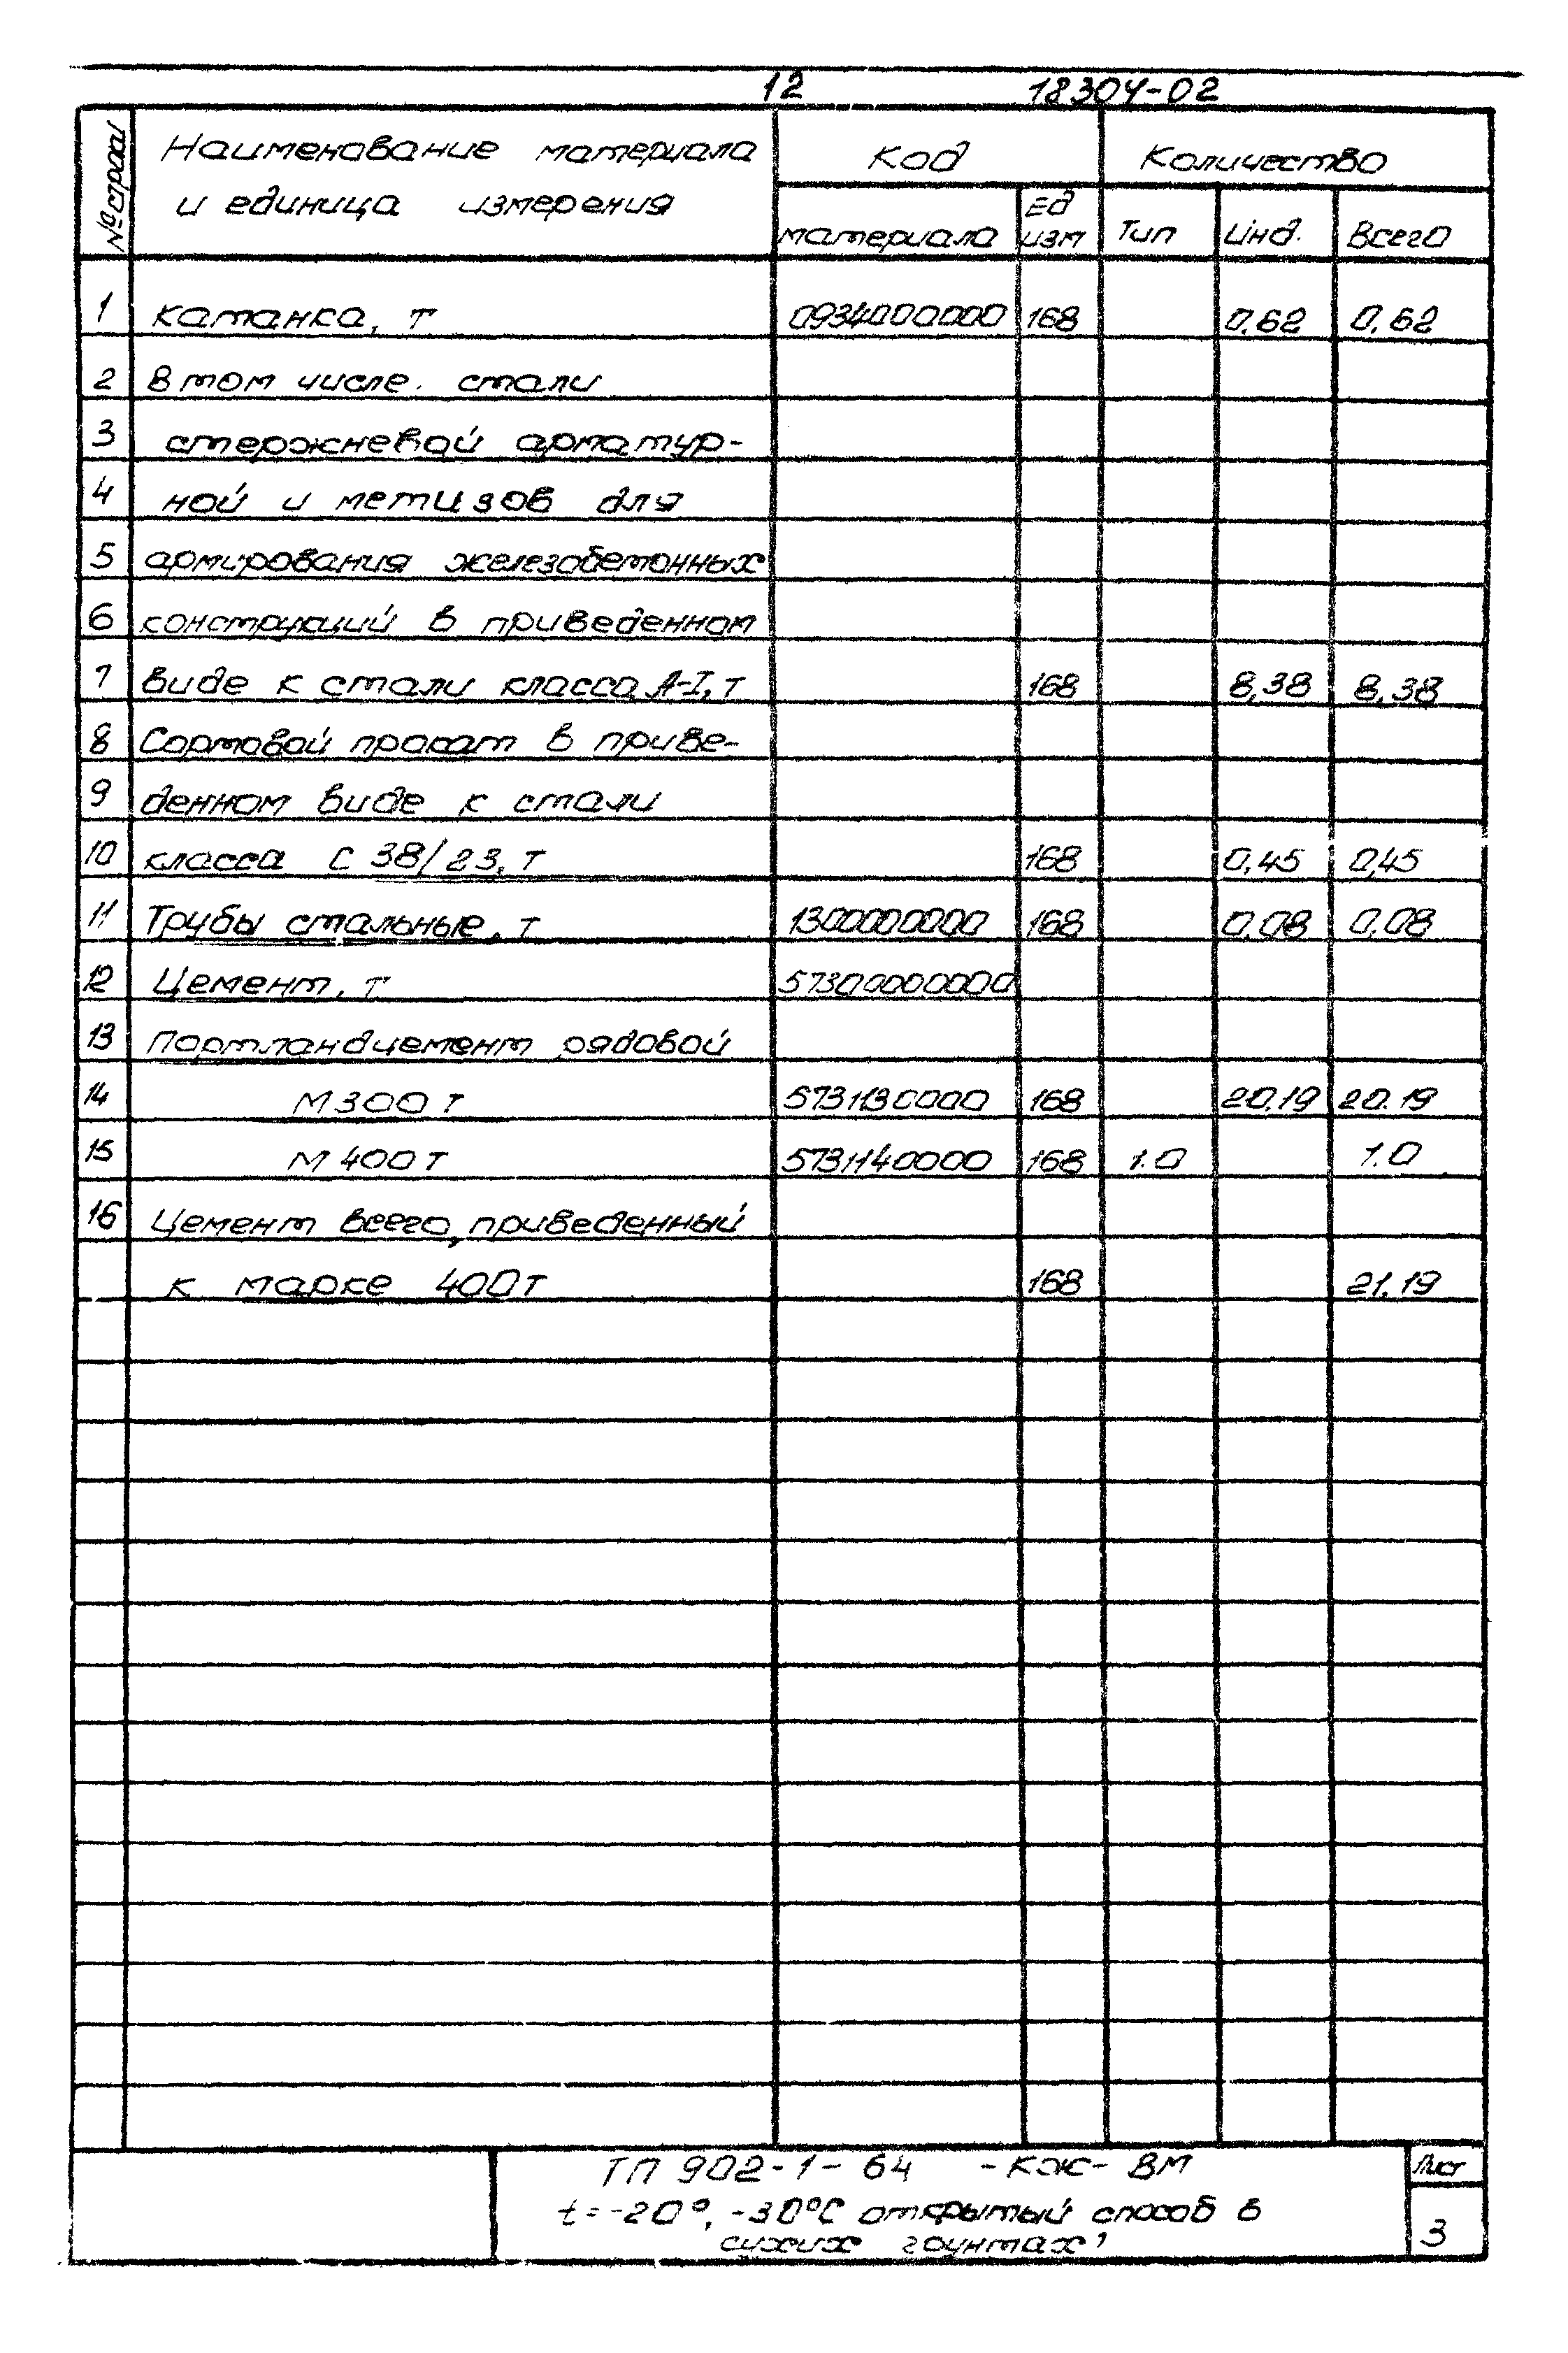 12 18304-02
№ строк Наименование материала Код Количество
и единица измерения материала Ед изм Тип Инд. Всего
1 Катанка, т 0934000000 168 0,62 0,62
2 В том числе. стали
3 стержневой арматур-
4 ной и метизов для
5 армирования железобетонных
6 конструкций в приведенном
7 виде к стали класса А-I, т 168 8,38 8,38
8 Сортовой прокат в приве-
9 денном виде к стали
10 класса С 38/23, т 168 0,45 0,45
11 Трубы стальные, т 1300000000 168 0,08 0,08
12 Цемент, т 57300000000
13 Портландцемент рядовой
14 М300 т 5731130000 168 20.19 20.19
15 М 400 т 5731140000 168 1.0 1.0
16 Цемент всего, приведенный
к марке 400т 168 21.19
ТП 902-1-64 -КЖ- ВМ Лист
t=-20°, -30°С открытый способ в
сухих грунтах 3